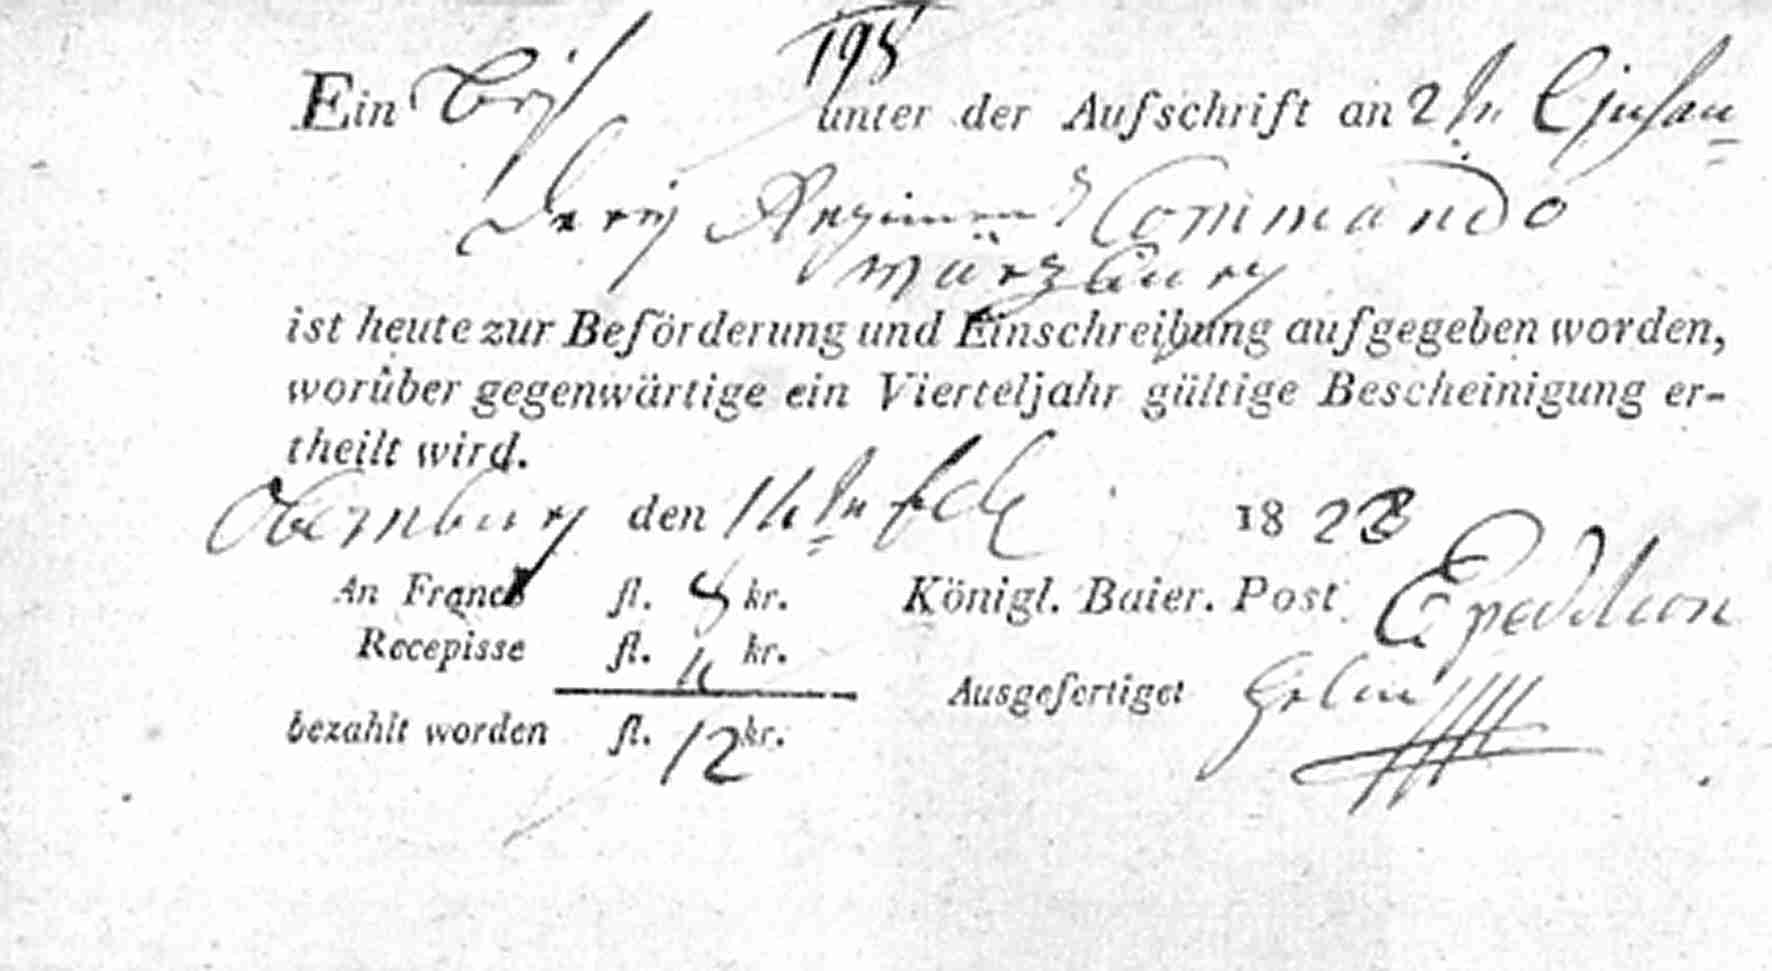 195
Ein Brief unter der Aufschrift an 2
Regiments Commando
Würzburg
ist heute zur Beförderung und Einschreibung aufgegeben worden,
worüber gegenwärtige ein Vierteljahr gültige Bescheinigung er-
theilt wird.
Obernburg den 14 1823
An Franco fl. 8 kr. Königl. Baier. Post Expedition
Recepisse fl. 4 kr.
Ausgefertiget
bezahlt worden fl. 12 kr.